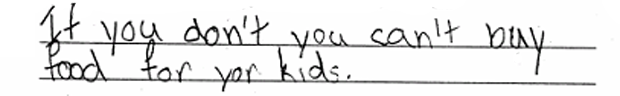 If you don't you can't buy
food for yor kids.